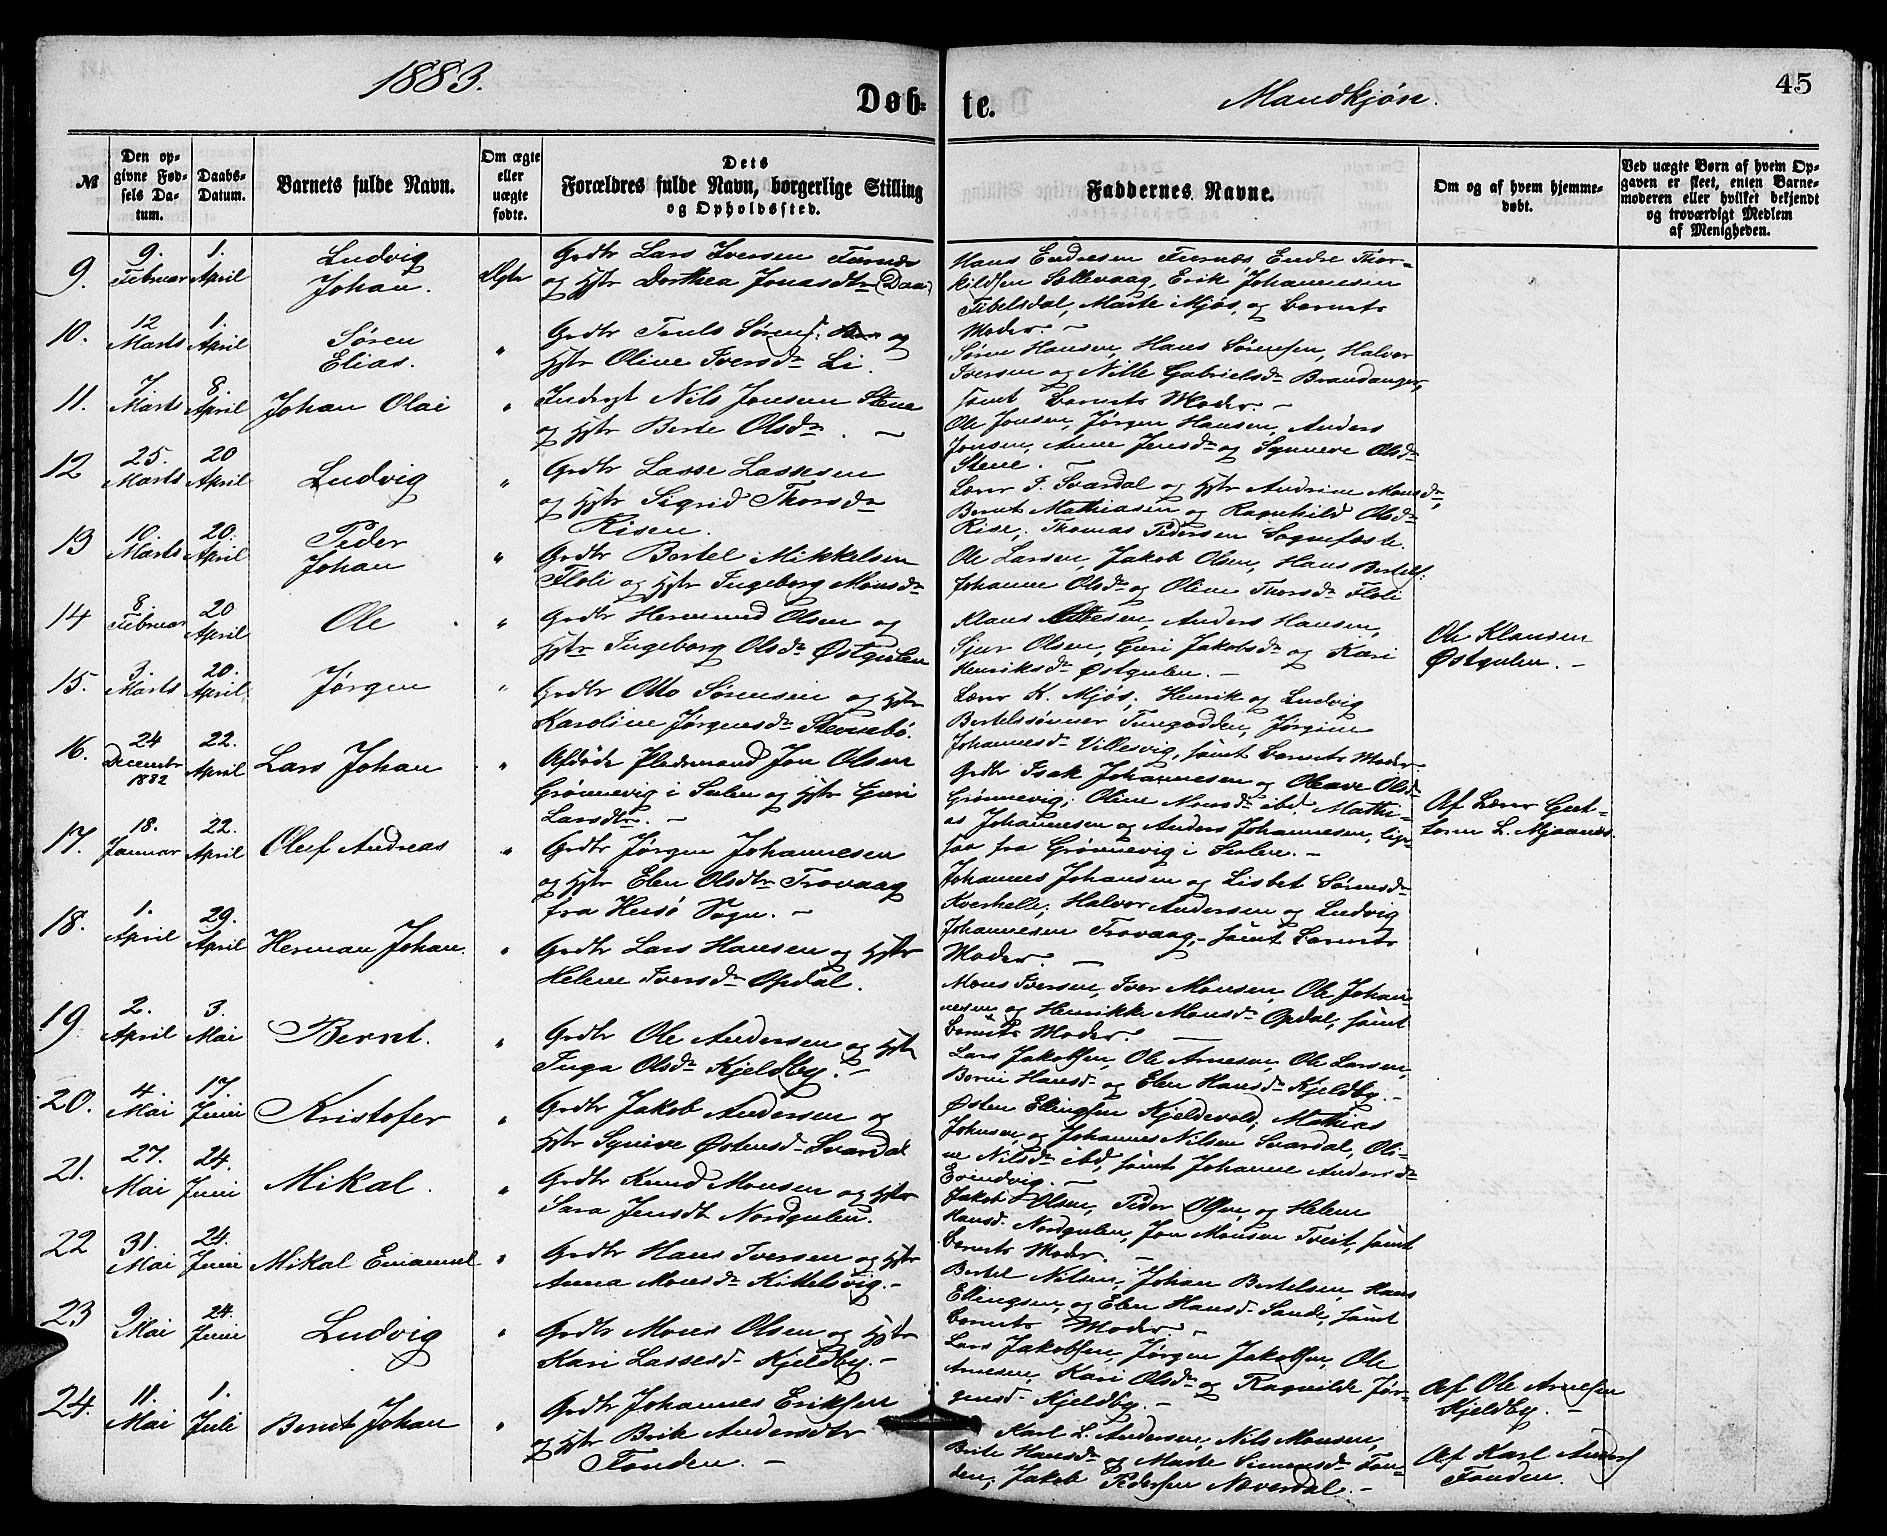 1883.
Døb-
te.
Mandkjøn.
45
№
Den op-
givne Fød-
sels Da-
tum.
Daabs-
Datum.
Barnets fulde Navn.
Om ægte
eller
uægte
fødte.
Dets
Forældres fulde Navn, borgerlige Stilling
og Opholdssted.
Faddernes Navne.
Om og af hvem hjemme-
døbt.
Ved uægte Børn af hvem Op-
gaven er skeet, enten Barne-
moderen eller hvilket bekjendt
og troværdigt Medlem
af Menigheden.
9.
9. Februar
1. April
Ludvig
Johan.
Ægte
Grdbr Lars Iversen Furnæs
og Hstr Dorthea Jonasdtr (Daa)
Hans Endresen Furnæs, Endre Thor-
kildsen Sollevaag, Erik Johannesen
Tibelsdal, Marte Mjøs, og Barnets
Moder. —
10.
12 Marts
1. April
Søren
Elias.
"
Grdbr Truls Sørens. og
Hstr Oline Iversdr Li.
Søren Hansen, Hans Sørensen, Halvor
Iversen og Nille Gabrielsdr Brandanger,
samt Barnets Moder. —
11.
7. Marts
8. April
Johan Olai
"
Inderst Nils Jonsen Stene
og Hstr Berte Olsdr. —
Ole Jonsen, Jørgen Hansen, Anders
Jonsen, Anne Jensdr og Synneve Olsdr
Stene.
12
25. Marts
20 April
Ludvig
"
Grdbr Lasse Lassesen
og Hstr Sigrid Thorsdr
Risen.
Lærer T. Svardal og Hstr Andrine Monsdr,
Bernt Mathiasen og Ragnhild Olsdr
Rise, Thomas Pedersen Sognefæste.
13
10. Marts
20. April
Peder
Johan
"
Grdbr Bertel Mikkelsen
Floli og Hstr Ingeborg Monsdr
Ole Larsen, Jakob Olsen, Hans Bertels.
Johanne Olsdr og Oline Thorsdr Floli
14
8. Februar
20 April
Ole
"
Grdbr Hermund Olsen og
Hstr Ingeborg Olsdr Østgulen
Klaus Ottesen, Anders Hansen,
Sjur Olsen, Guri Jakobsdr og Kari
Henriksdr Østgulen. —
Ole Klausen
Østgulen. —
15.
3. Marts
20. April
Jørgen
"
Grdbr Otto Sørensen og Hstr
Karoline Jørgensdr Stensebø.
Lærer K. Mjøs, Henrik og Ludvig
Bertelssønner Tungodden, Jørgine
Johannesdr Villesvig, samt Barnets Moder
16.
24 December 1882
22. April
Lars Johan
"
Afdøde Pladsmand Jon Olsen
Grønnevig i Sulen og Hstr Guri
Larsdtr. —
Grdbr Isak Johannesen og Oleave Olsdr
Grønnevig, Oline Monsdr ibd, Mathi-
as Johannesen og Anders Johannesen, lige-
saa fra Grønnevig i Sulen. —
Af Lærer Gut-
torm L. Mjaanes.
17.
18. Januar
22. April
Oluf Andreas
"
Grdbr Jørgen Johannesen
og Hstr Elen Olsdtr Trovaag
fra Husø Sogn. —
Johannes Johansen og Lisbet Sørensdr
Kverhelle, Halvor Andersen og Ludvig
Johannesen Trovaag, samt Barnets
Moder. —
18.
1. April
29. April
Herman Johan.
"
Grdbr Lars Hansen og Hstr
Helene Iversdr Opdal.
Mons Iversen, Iver Monsen, Ole Johan-
nesen og Henrikke Monsdr Opdal, samt
Barnets Moder. —
19
2. April
3. Mai
Bernt.
"
Grdbr Ole Andersen og Hstr
Inga Olsdr Kjeldby. —
Lars Jakobsen, Ole Arnesen, Ole Larsen,
Berin Hansdr og Elen Hansdr Kjeldby. —
20.
4. Mai
17. Juni
Kristofer
"
Grdbr Jakob Andersen og
Hstr Synive Østensdr Svardal
Østen Ellingsen Kjeldevold, Mathias
Johnsen og Johannes Nilsen Svardal, Oli-
ne Nilsdr ibd, samt Johanne Andersdr
Evindvig. —
21.
27. Mai
24. Juni
Mikal.
"
Grdbr Knud Monsen og Hstr
Sara Jensdt Nordgulen.
Jakob Olsen, Peder Olsen, og Helene
Hansd. Nordgulen, Jon Monsen Tveit, samt
Barnets Moder. —
22
31. Mai
24. Juni
Mikal Emanuel
"
Grdbr Hans Iversen og Hstr
Anna Monsdr Kittelsvig. —
Bertel Nilsen, Johan Bertelsen, Hans
Ellingsen, og Elen Hansd. Sande, samt
Barnets Moder. —
23
9 Mai
24. Juni
Ludvig
"
Grdbr Mons Olsen og Hstr
Kari Lassesd. Kjeldby. —
Lars Jakobsen, Jørgen Jakobsen, Ole
Arnesen, Kari Olsdr og Ragnilde Jør-
gensd. Kjeldby. —
Af Ole Arnesen
Kjeldby. —
24.
11. Mai
1. Juli
Bernt Johan
"
Grdbr Johannes Eriksen
og Hstr Brite Andersdtr
Fonden. —
Karl L. Andersen, Nils Monsen,
Brite Hansdr og Marte Simonsdr Fon-
den, Jakob Pedersen Næverdal. —
Af Karl Anders.
Fonden.